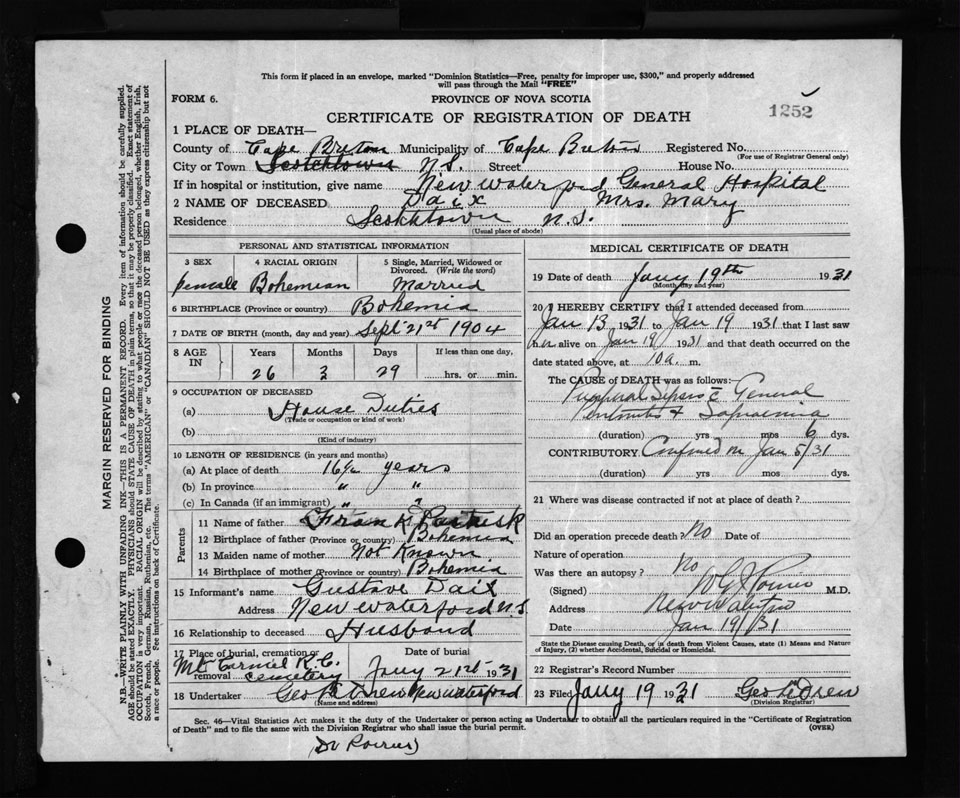 This form if placed in an envelope, marked "Dominion Statistics—Free, penalty for improper use, $300," and properly addressed
will pass through the Mail "FREE"
FORM 6.
PROVINCE OF NOVA SCOTIA
1252
CERTIFICATE OF REGISTRATION OF DEATH
1 PLACE OF DEATH—
County of Cape Breton Municipality of Cape Breton Registered No.
(For use of Registrar General only)
City or Town Scotchtown N.S. Street House No.
If in hospital or institution, give name New Waterford General Hospital
2 NAME OF DECEASED Daix Mrs. Mary
Residence Scotchtown N.S.
(Usual place of abode)
PERSONAL AND STATISTICAL INFORMATION
3 SEX 4 RACIAL ORIGIN 5 Single, Married, Widowed or
Divorced. (Write the word)
female Bohemian Married
6 BIRTHPLACE (Province or country) Bohemia
7 DATE OF BIRTH (month, day and year) Sept 21st 1904
8 AGE IN Years Months Days If less than one day,
26 3 29 hrs. or min.
9 OCCUPATION OF DECEASED
(a) House Duties
(Trade or occupation or kind of work)
(b)
(Kind of industry)
10 LENGTH OF RESIDENCE (in years and months)
(a) At place of death years
(b) In province " "
(c) In Canada (if an immigrant) " "
Parents
11 Name of father Frank
12 Birthplace of father (Province or country) Bohemia
13 Maiden name of mother Not Known
14 Birthplace of mother (Province or country) Bohemia
15 Informant's name Gustave Daix
Address New Waterford N.S.
16 Relationship to deceased Husband
17 Place of burial, cremation or removal Date of burial
Mt Carmel R.C. cemetery Jany 21st 1931
18 Undertaker Geo LeDrew New Waterford
(Name and address)
MEDICAL CERTIFICATE OF DEATH
19 Date of death Jany 19th 1931
(Month, day and year)
20 I HEREBY CERTIFY that I attended deceased from
Jan 13 1931 to Jan 19 1931 that I last saw
her alive on Jan 19 1931 and that death occurred on the
date stated above, at 10 a. m.
The CAUSE of DEATH was as follows:
Puerperal Sepsis c General
Peritonitis & Sapraemia
(duration) yrs mos 6 dys.
CONTRIBUTORY Confined on Jan 5/31
(duration) yrs. mos. dys.
21 Where was disease contracted if not at place of death?
Did an operation precede death? No Date of
Nature of operation
Was there an autopsy? No
(Signed) M.D.
Address New Waterford
Date Jan 19/31
State the Disease causing Death, or in death from Violent Causes, state (1) Means and Nature
of Injury, (2) whether Accidental, Suicidal or Homicidal.
22 Registrar's Record Number
23 Filed Jany 19 1931 Geo LeDrew
(Division Registrar)
Sec. 46—Vital Statistics Act makes it the duty of the Undertaker or person acting as Undertaker to obtain all the particulars required in the "Certificate of Registration
of Death" and to file the same with the Division Registrar who shall issue the burial permit.
(OVER)
MARGIN RESERVED FOR BINDING
N.B.—WRITE PLAINLY WITH UNFADING INK—THIS IS A PERMANENT RECORD. Every item of information should be carefully supplied.
AGE should be stated EXACTLY. PHYSICIANS should STATE CAUSE OF DEATH in plain terms, so that it may be properly classified. Exact statement of
OCCUPATION is very important. RACIAL ORIGIN will be described by stating to what people or race the deceased person belonged, whether English, Irish,
Scotch, French, German, Russian, Ruthenian, etc. The terms "AMERICAN" or "CANADIAN" SHOULD NOT BE USED as they express citizenship but not
a race or people. See instructions on back of Certificate.